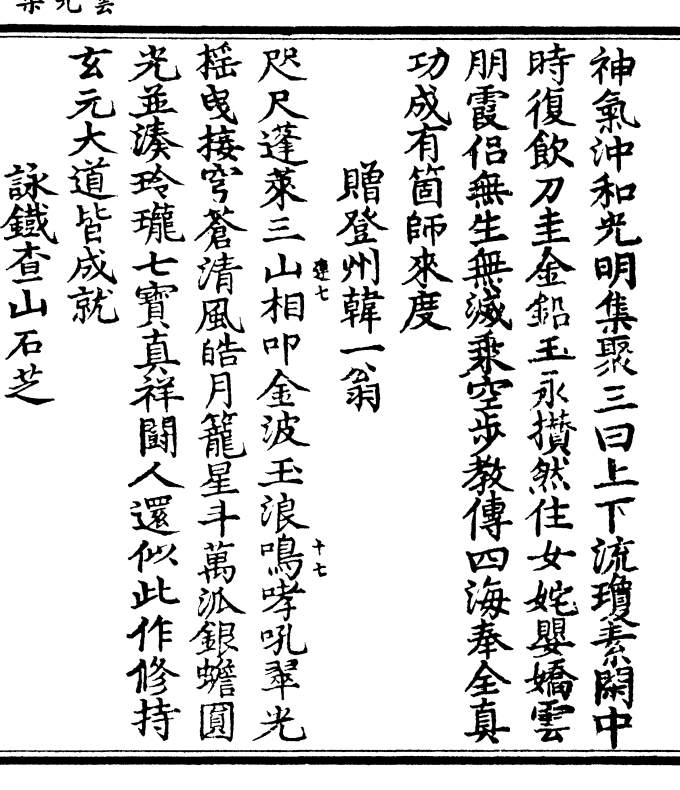 神氣沖和光明集聚三曰上下流瓊素閑中
時復飲刀圭金鉛玉汞攅然住女姹嬰嬌雲
朋霞侶無生無滅乘空步教傳四海奉全真
功成有箇師來度
贈登州韓一翁
咫尺蓬萊三山相叩金波玉浪鳴哮吼翠光
搖曳接穹蒼清風皓月籠星斗萬泒銀蟾圓
光並湊玲瓏七寶真祥鬪人還似此作修持
玄元大道皆成就
詠鐵查山石芝